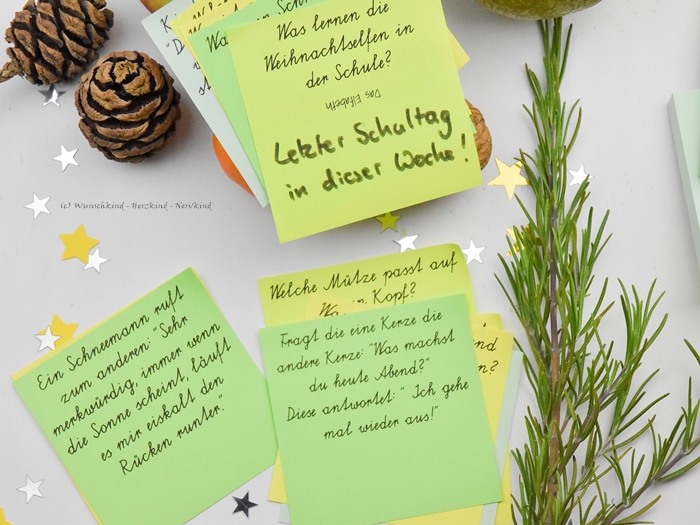 Was lernen die
Weihnachtselfen in
der Schule?
Das Elfabeth
Letzter Schultag
in dieser Woche!
(c) Wunschkind - Herzkind - Nervkind
Welche Mütze passt auf
Kopf?
Ein Schneemann ruft
zum anderen: "Sehr
merkwürdig, immer wenn
die Sonne scheint, läuft
es mir eiskalt den
Rücken runter."
Fragt die eine Kerze die
andere Kerze: "Was machst
du heute Abend?"
Diese antwortet: " Ich gehe
mal wieder aus!"